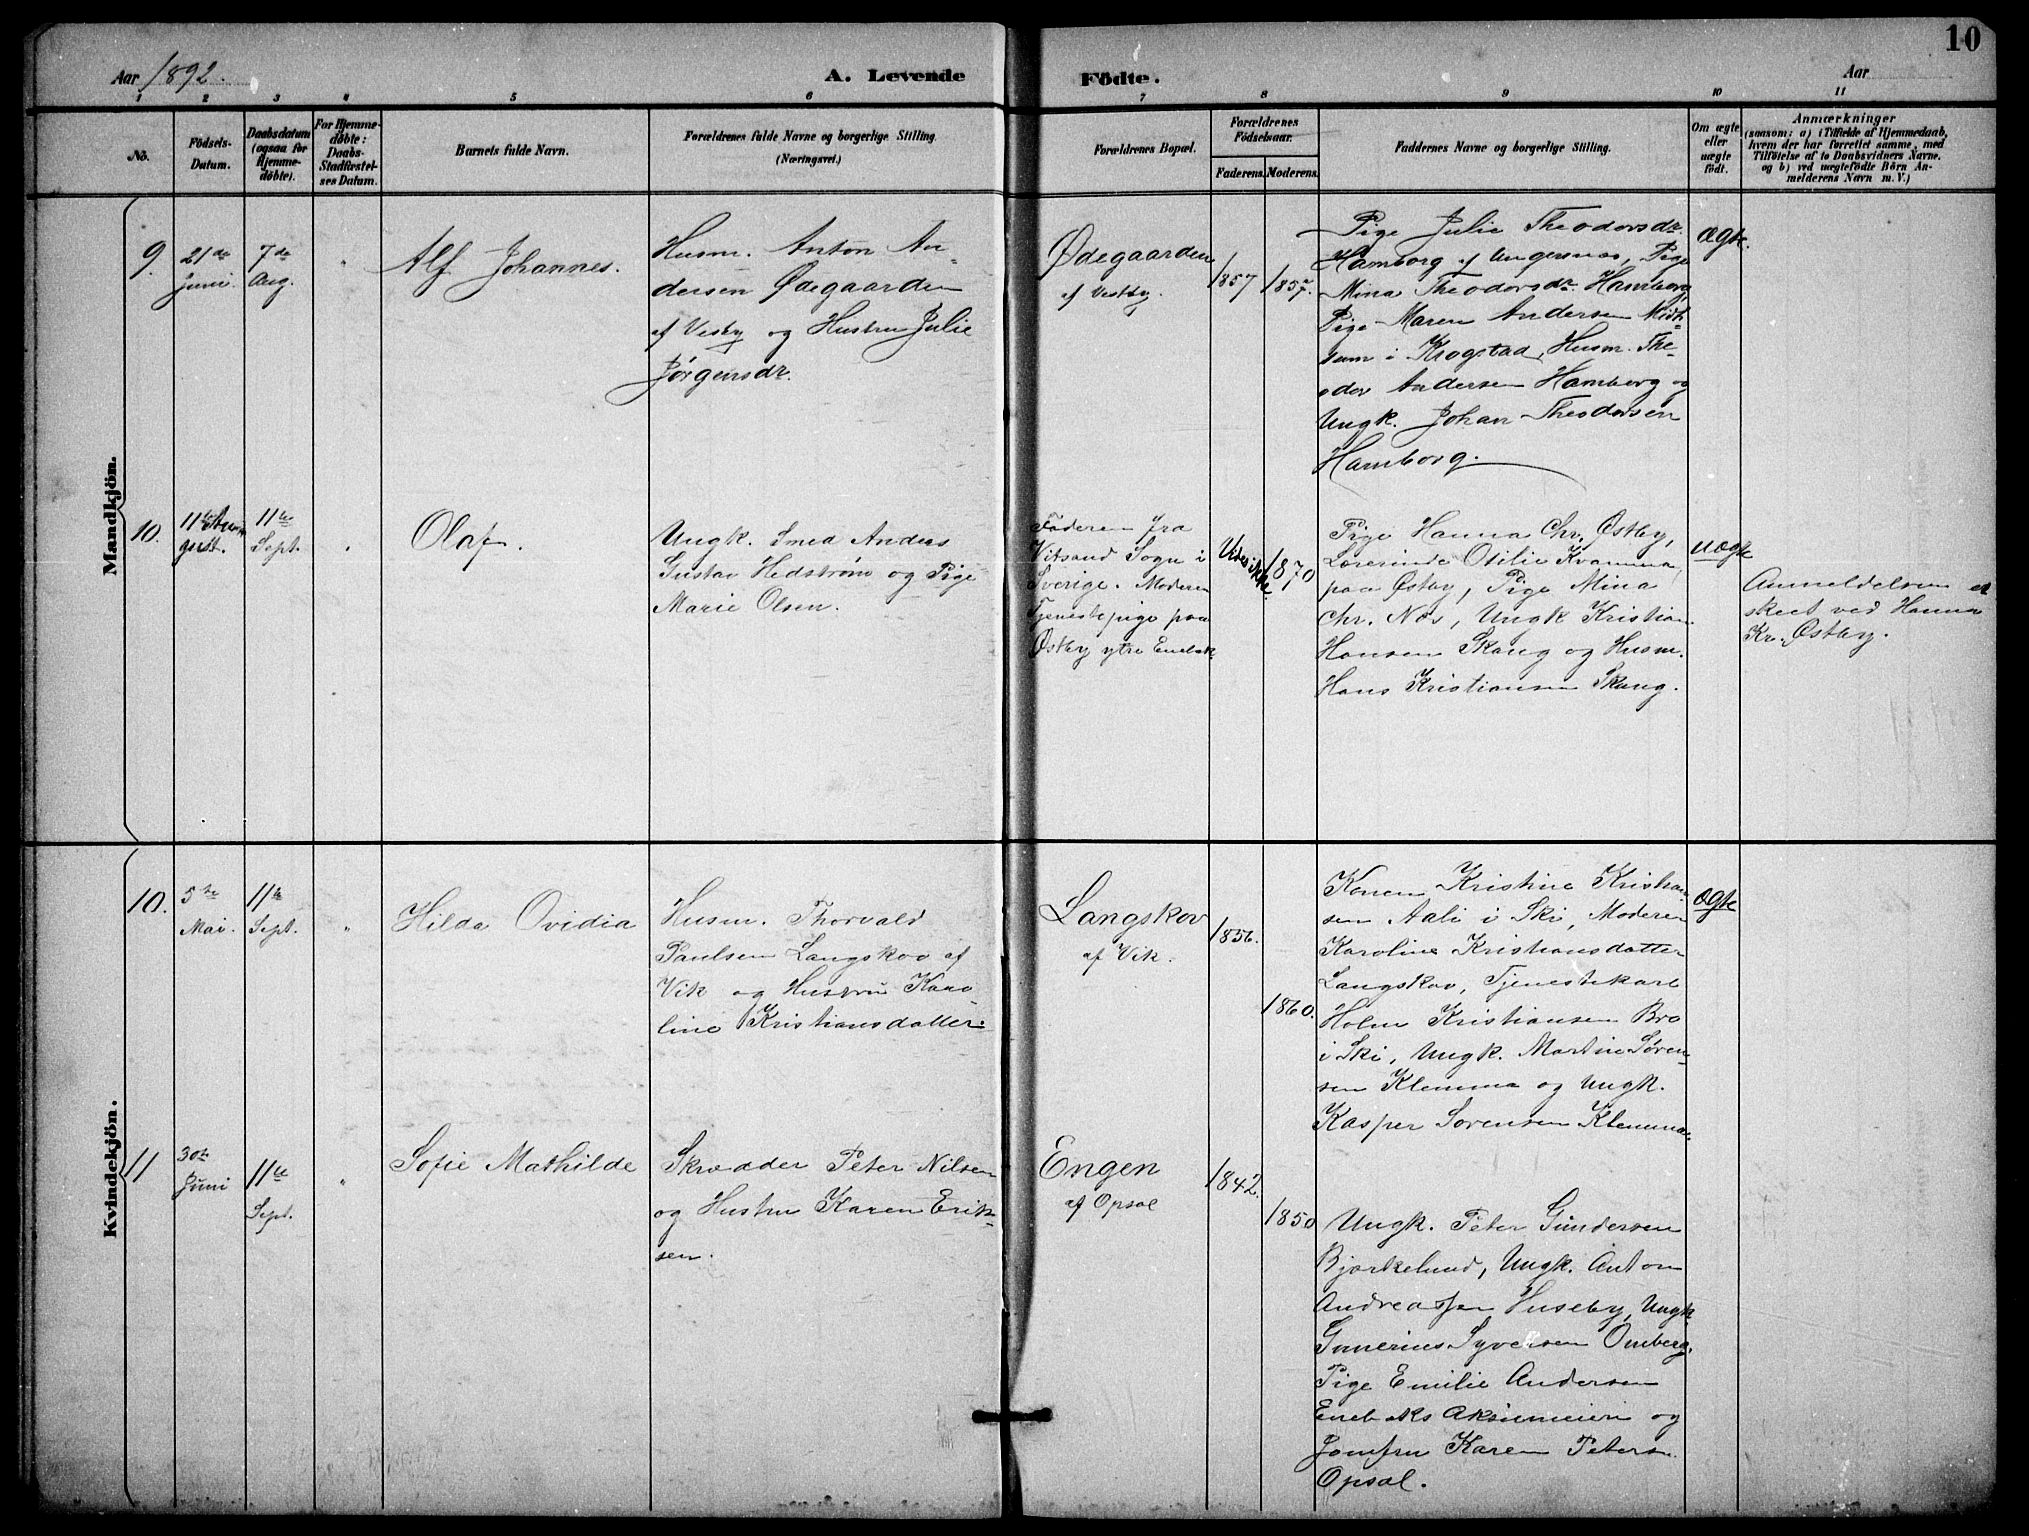 10
Aar 1892.
A. Levende Födte.
Aar
1 2 3 4 5 6 7 8 9 10 11
No.
Födsels-
Datum.
Daabsdatum
(ogsaa for
Hjemme-
döbte).
For Hjemme-
döbte:
Daabs-
Stadfæstel-
ses Datum.
Barnets fulde Navn.
Forældrenes fulde Navne og borgerlige Stilling.
(Næringsvei.)
Forældrenes Bopæl.
Forældrenes
Födselsaar.
Faderens. Moderens.
Faddernes Navne og borgerlige Stilling.
Om ægte
eller
uægte
födt.
Anmærkninger
(saasom: a) i Tilfælde af Hjemmedaab,
hvem der har forrettet samme, med
Tilföielse af to Daabsvidners Navne.
og b) ved uægtefödte Börn An-
melderens Navn m. V.)
Mandkjön.
9.
21de
Juni.
7de
Aug.
"
Alf Johannes.
Husm. Anton An-
dersen Ødegaarden
af Vesby og Hustru Julie
Jørgensdr.
Ødegaarden
af Vestby.
1857
1857.
Pige Julie Theodorsdr.
Hamborg af Ungersnæs, Pige
Mina Theodorsdr. Hamborg,
Pige Maren Andersen Midt-
sum i Krogstad, Husm. The-
odor Andersen Hamborg og
Ungk. Johan Theodorsen
Hamborg.
ægte.
10.
11te Au-
gust.
11te
Sept.
"
Olaf.
Ungk. Smed Anders
Gustav Hedstrøm og Pige
Marie Olsen.
Faderen fra
Vitsand Sogn i
Sverige. Moderen
Tjenestepige paa
Østby ytre Enebak.
Vides ikke.
1870
Pige Hanna Chr. Østby,
Lærerinde Otilie Kvamma
paa Østby, Pige Mina
Chr. Næs, Ungk Kristian
Hansen Skaug og Husm.
Hans Kristiansen Skaug.
uægte
Anmeldelsen er
skeet ved Hanna
Kr. Østby.
Kvindekjön.
10.
5te
Mai.
11te
Sept.
"
Hilda Ovidia
Husm. Thorvald
Paulsen Langskov af
Vik og Hustru Karo-
line Kristiansdatter.
Langskov
af Vik.
1856.
1860.
Konen Kristine Kristian-
sen Aali i Ski, Moderen
Karoline Kristiansdatter
Langskov, Tjenestekarl
Holm Kristiansen Bro
i Ski, Ungk. Martin Søren-
sen Klemma og Ungk.
Kasper Sørensen Klemma.
ægte
11
30te
Juni
11te
Sept.
"
Sofie Mathilde
Skrædder Peter Nilsen
og Hustru Karen Erik-
sen.
Engen
af Opsal
1842.
1850
Ungk. Peter Gundersen
Bjørkelund, Ungk. Anton
Andreassen Huseby, Ungk
Gunerius Syversen Omberg.
Pige Emilie Andersen
Enebaks Aksiemeieri og
Jomfru Karen Peters.
Opsal.